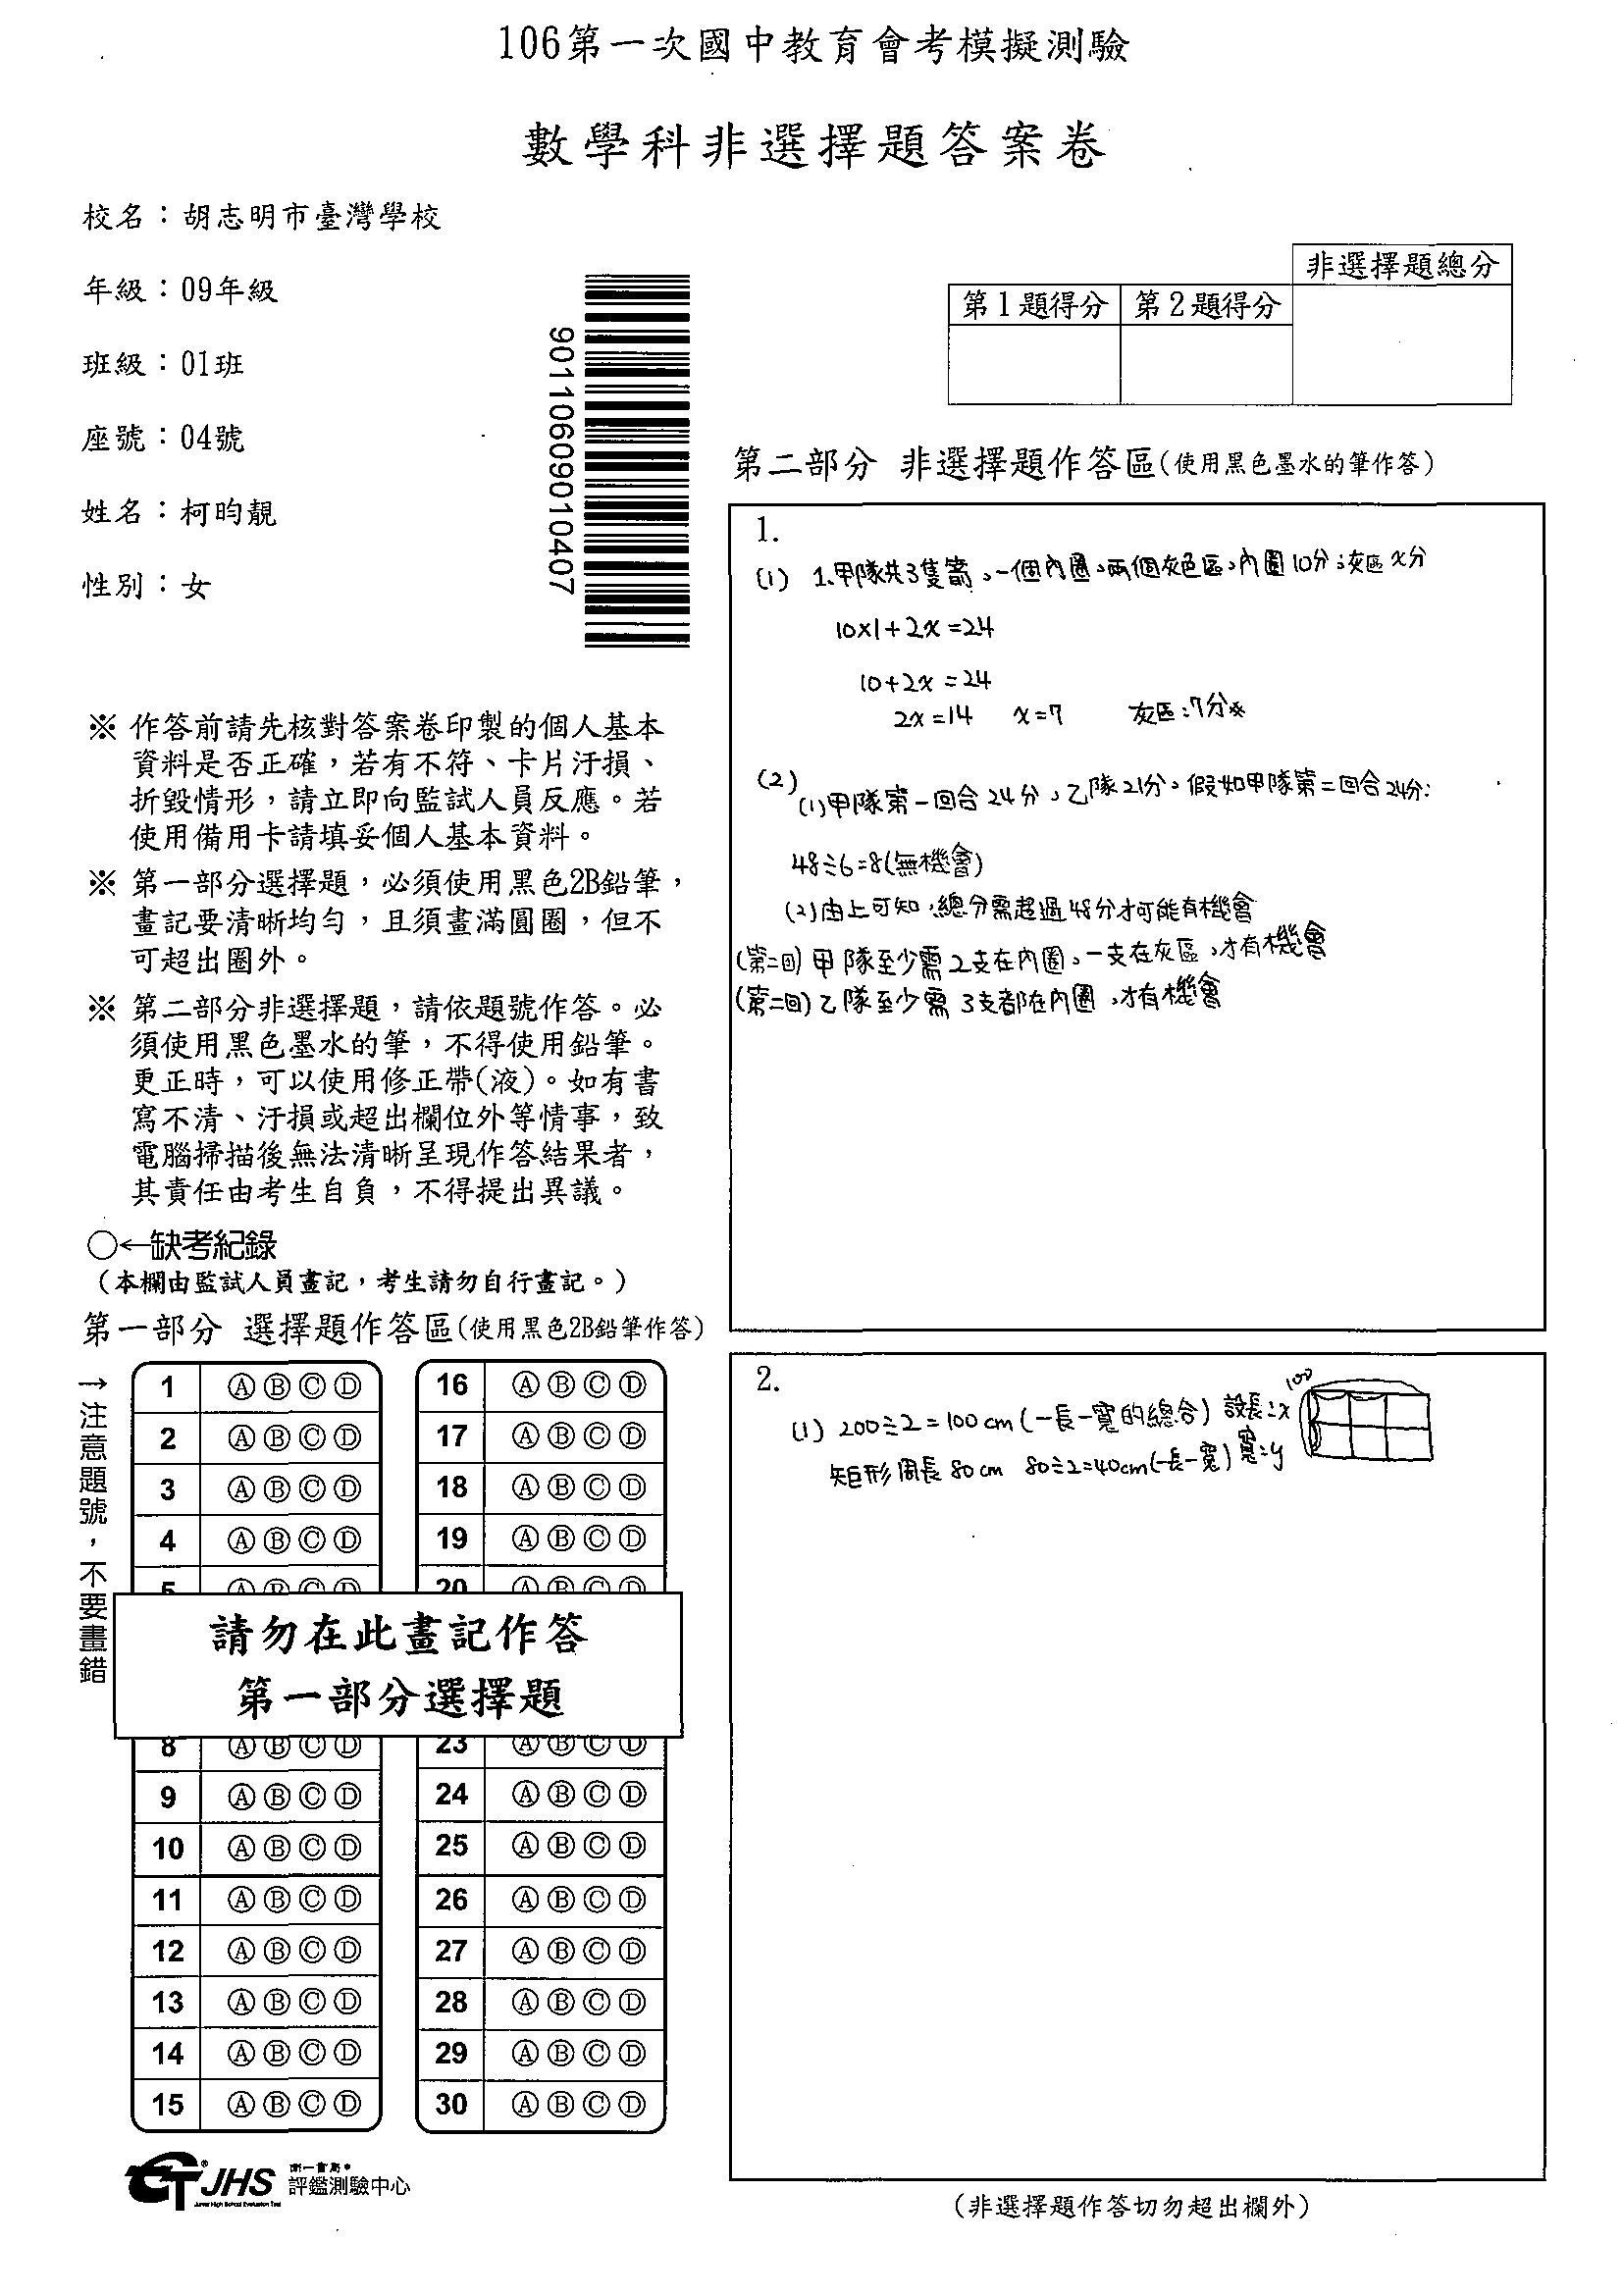 106第一次國中教育會考模擬測驗
數學科非選擇題答案卷
校名：胡志明市臺灣學校
年級：09年級
班級：01班
座號：04號
姓名：柯昀靚
性別：女
9011060901040​7
非選擇題總分
第1題得分 第2題得分
※ 作答前請先核對答案卷印製的個人基本
資料是否正確，若有不符、卡片汙損、
折毀情形，請立即向監試人員反應。若
使用備用卡請填妥個人基本資料。
※ 第一部分選擇題，必須使用黑色2B鉛筆，
畫記要清晰均勻，且須畫滿圓圈，但不
可超出圈外。
※ 第二部分非選擇題，請依題號作答。必
須使用黑色墨水的筆，不得使用鉛筆。
更正時，可以使用修正帶(液)。如有書
寫不清、汙損或超出欄位外等情事，致
電腦掃描後無法清晰呈現作答結果者，
其責任由考生自負，不得提出異議。
○←缺考紀錄
（本欄由監試人員畫記，考生請勿自行畫記。）
第一部分 選擇題作答區(使用黑色2B鉛筆作答)
→注意題號，不要畫錯
1 Ⓐ Ⓑ Ⓒ Ⓓ
2 Ⓐ Ⓑ Ⓒ Ⓓ
3 Ⓐ Ⓑ Ⓒ Ⓓ
4 Ⓐ Ⓑ Ⓒ Ⓓ
5 Ⓐ Ⓑ Ⓒ Ⓓ
16 Ⓐ Ⓑ Ⓒ Ⓓ
17 Ⓐ Ⓑ Ⓒ Ⓓ
18 Ⓐ Ⓑ Ⓒ Ⓓ
19 Ⓐ Ⓑ Ⓒ Ⓓ
20 Ⓐ Ⓑ Ⓒ Ⓓ
請勿在此畫記作答
第一部分選擇題
8 Ⓐ Ⓑ Ⓒ Ⓓ
9 Ⓐ Ⓑ Ⓒ Ⓓ
10 Ⓐ Ⓑ Ⓒ Ⓓ
11 Ⓐ Ⓑ Ⓒ Ⓓ
12 Ⓐ Ⓑ Ⓒ Ⓓ
13 Ⓐ Ⓑ Ⓒ Ⓓ
14 Ⓐ Ⓑ Ⓒ Ⓓ
15 Ⓐ Ⓑ Ⓒ Ⓓ
23 Ⓐ Ⓑ Ⓒ Ⓓ
24 Ⓐ Ⓑ Ⓒ Ⓓ
25 Ⓐ Ⓑ Ⓒ Ⓓ
26 Ⓐ Ⓑ Ⓒ Ⓓ
27 Ⓐ Ⓑ Ⓒ Ⓓ
28 Ⓐ Ⓑ Ⓒ Ⓓ
29 Ⓐ Ⓑ Ⓒ Ⓓ
30 Ⓐ Ⓑ Ⓒ Ⓓ
JHS 評鑑測驗中心
Junior High School Evaluation Test
第二部分 非選擇題作答區(使用黑色墨水的筆作答)
1.
(1) 1.甲隊共3隻箭，一個內圈，兩個灰色區，內圈10分；灰區x分
10×1+2x=24
10+2x=24
2x=14 x=7 灰區:7分
(2)
(1)甲隊第一回合24分，乙隊21分，假如甲隊第二回合24分:
48÷6=8(無機會)
(2)由上可知，總分需超過48分才可能有機會
(第二回)甲隊至少需2支在內圈，一支在灰區，才有機會
(第二回)乙隊至少需3支都在內圈，才有機會
2.
(1) 200÷2=100cm(一長一寬的總合) 設長:x
100
矩形周長80cm 80÷2=40cm(一長一寬) 寬:y
（非選擇題作答切勿超出欄外）